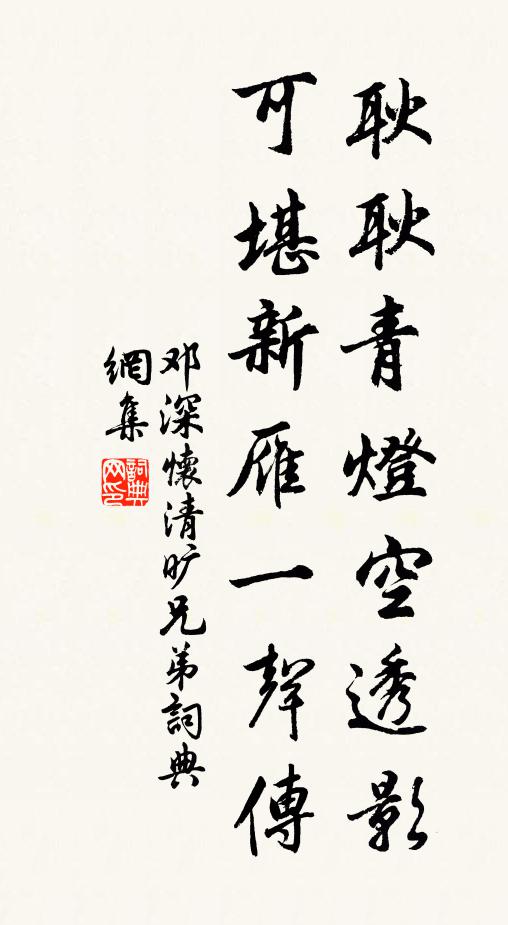 耿耿青燈空透影
可堪新雁一聲傳
邓深懷清旷兄弟詞典
網集
詞典網印